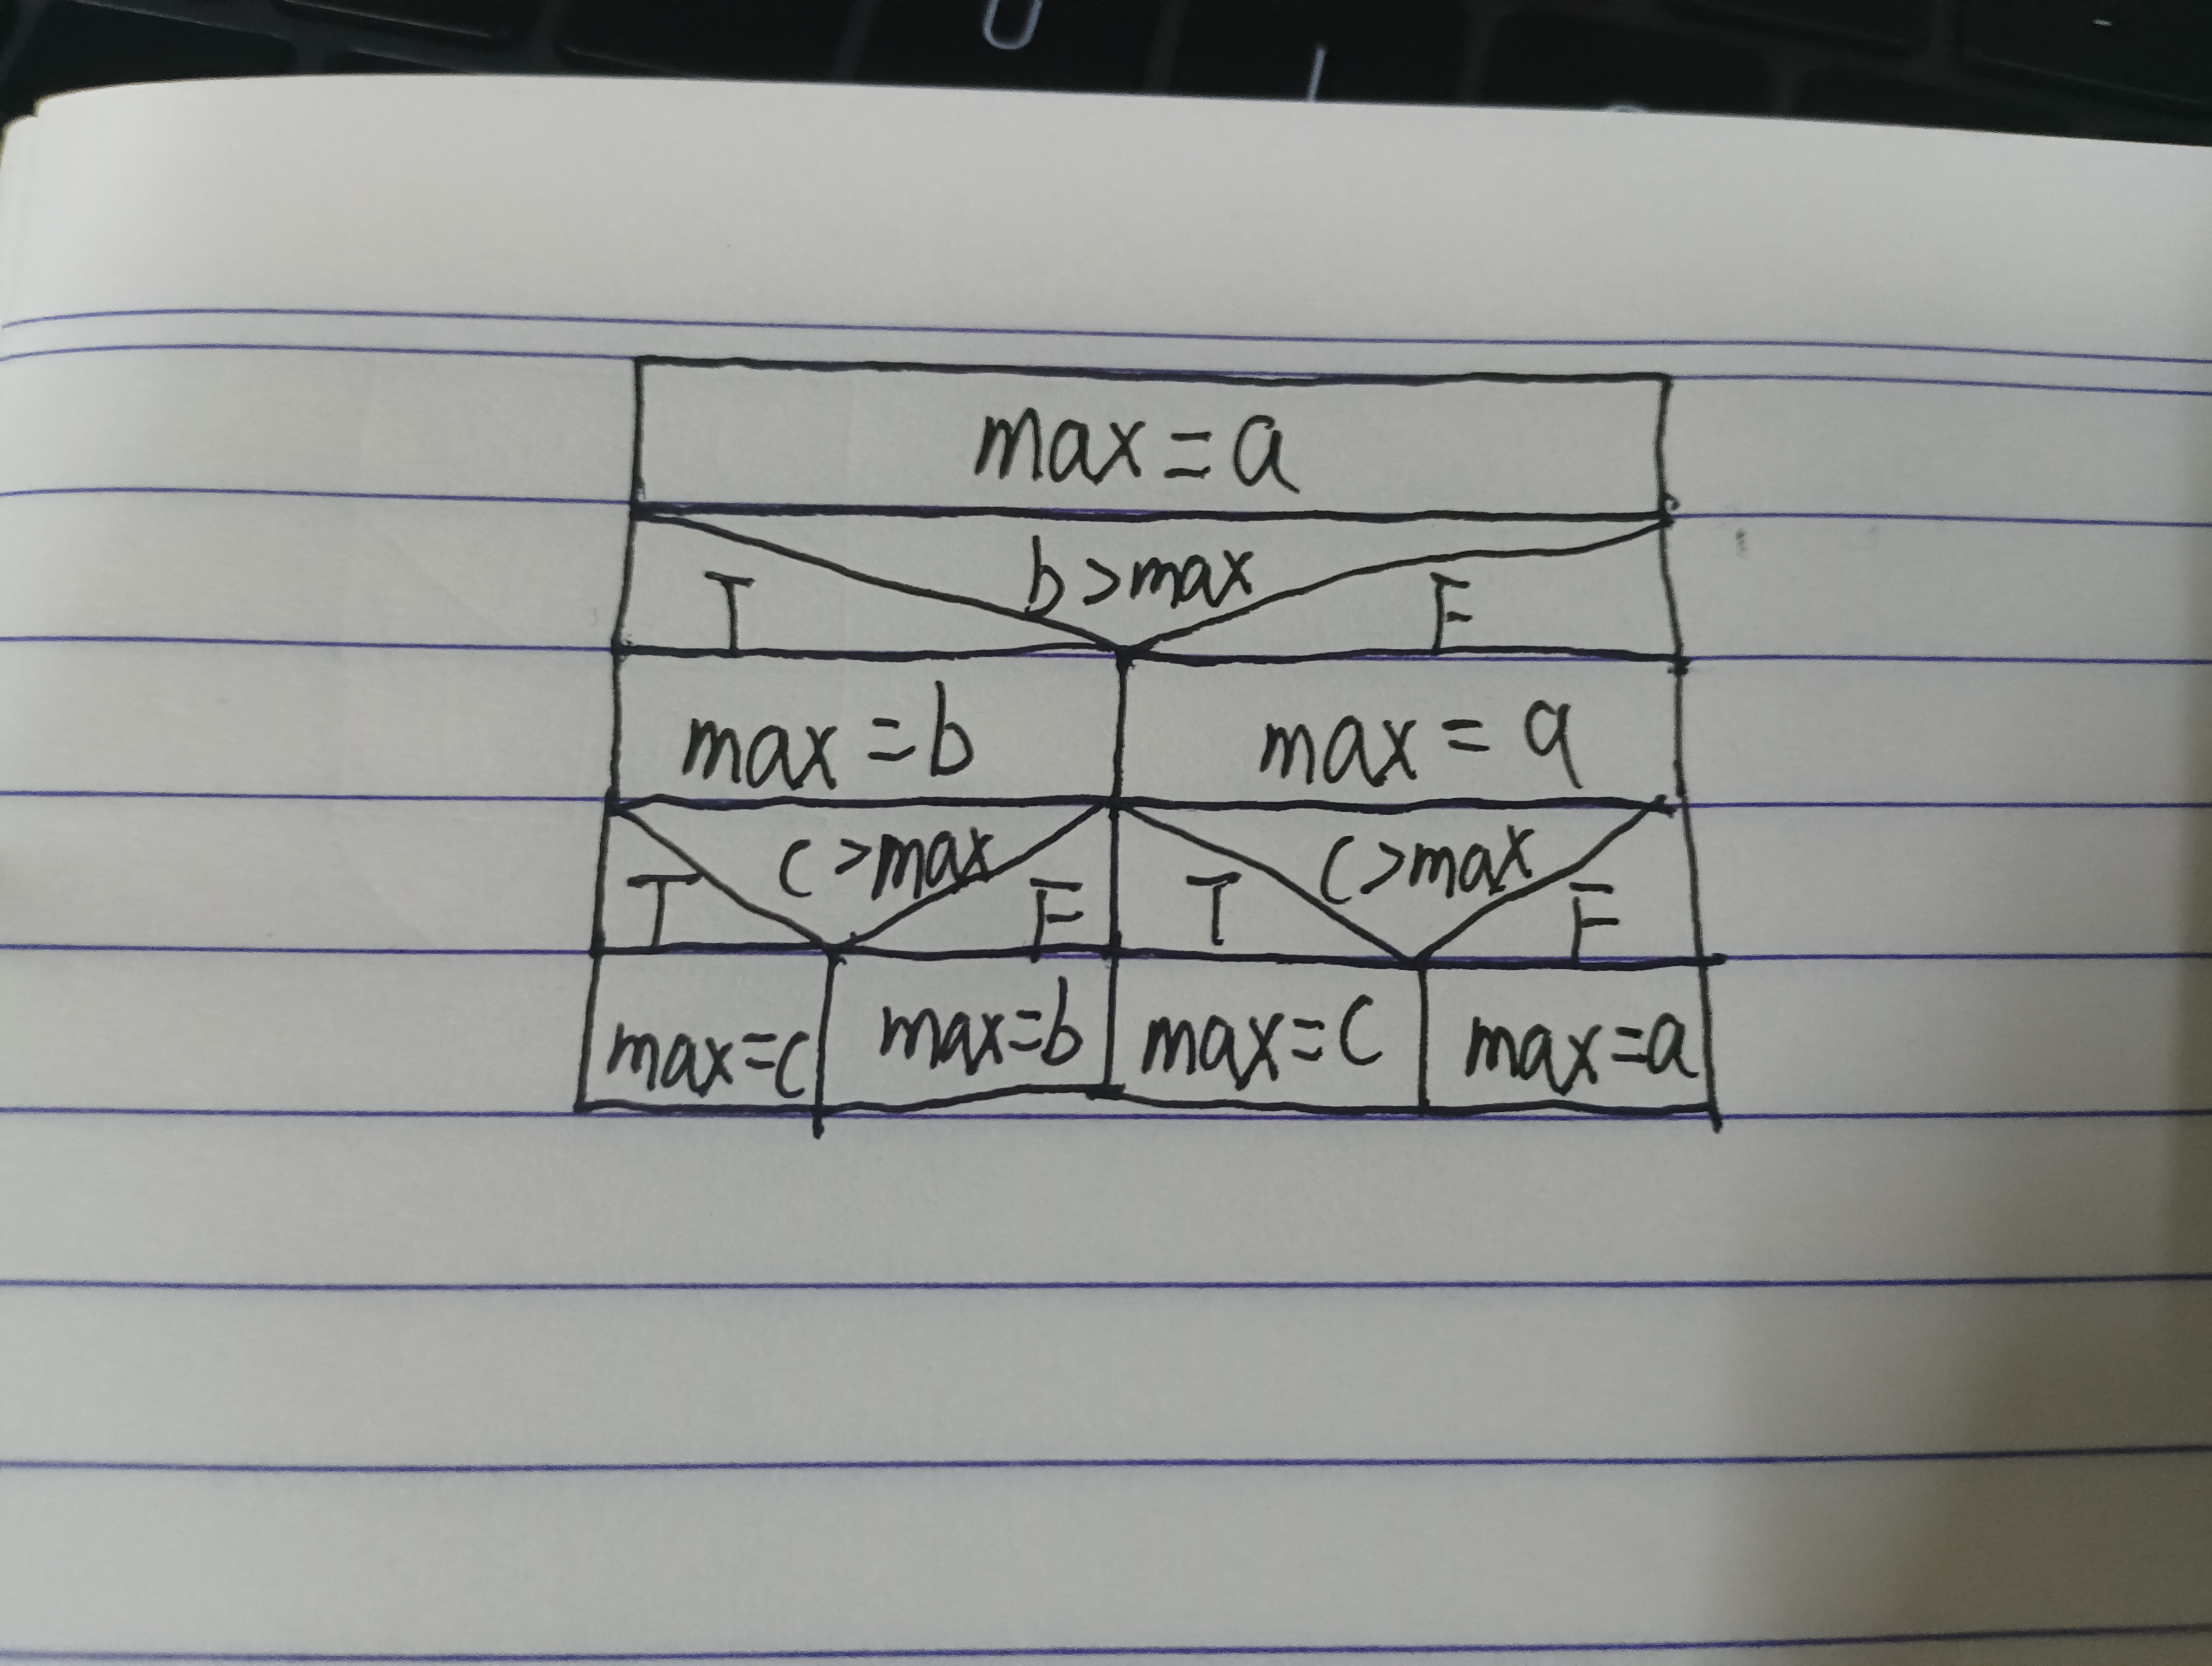 max=a
b>max
T F
max=b max=a
c>max c>max
T F T F
max=c max=b max=c max=a